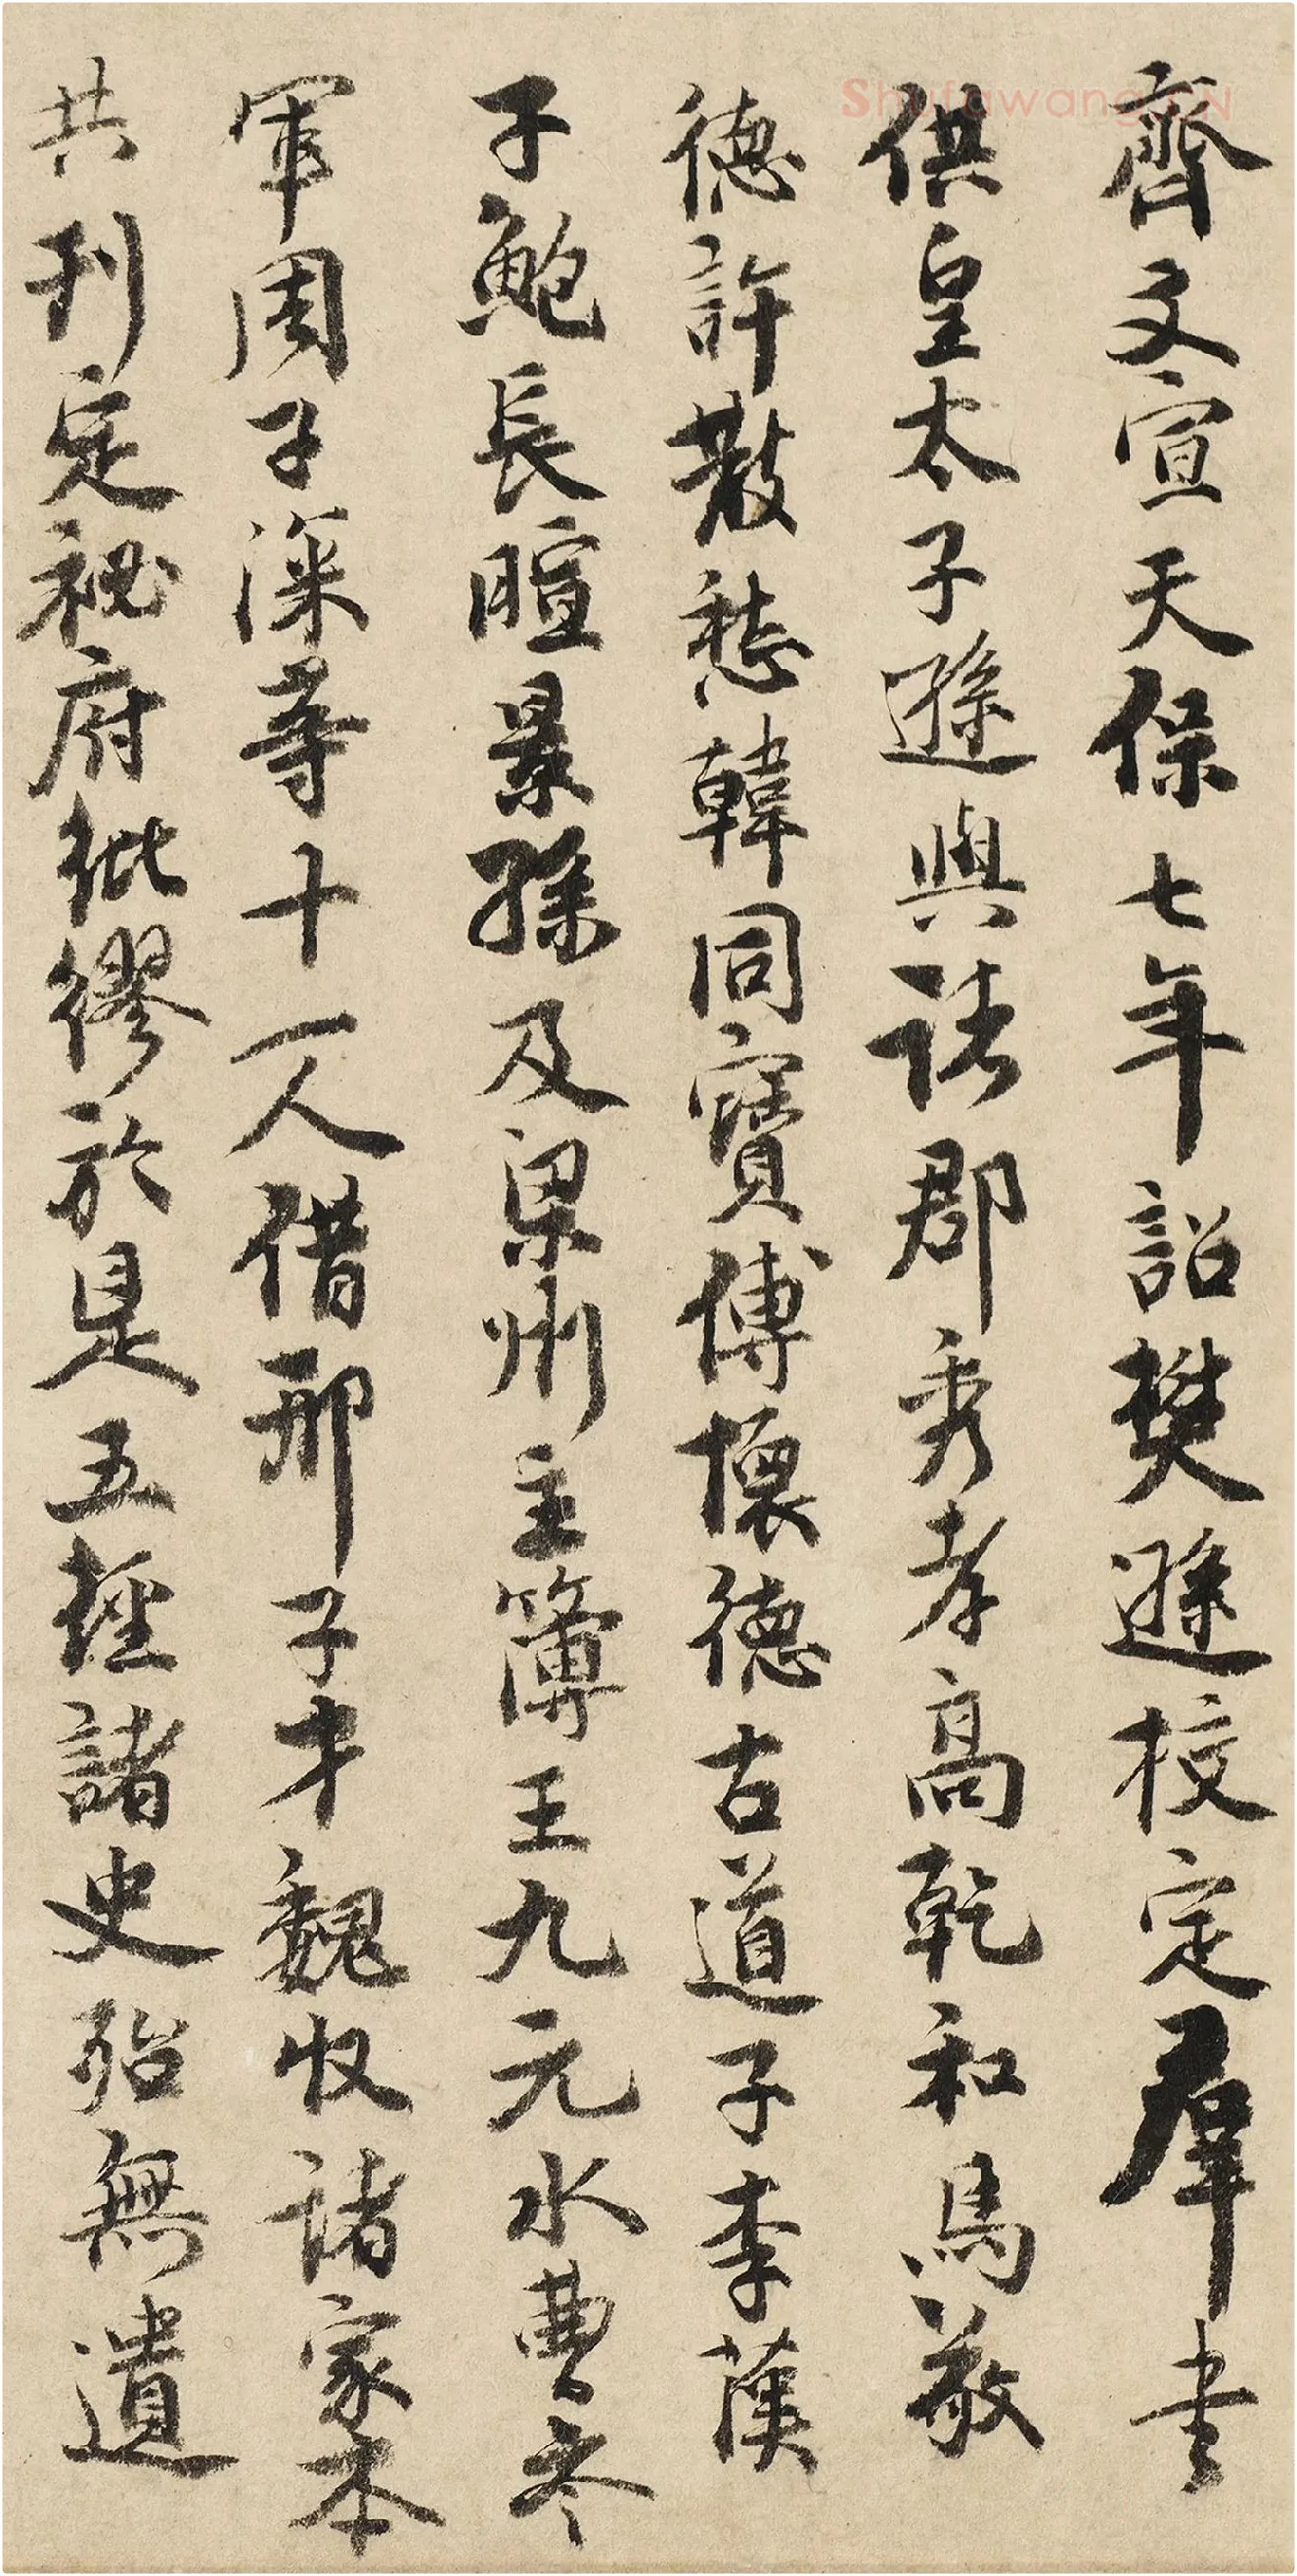 齊文宣天保七年詔樊遜校定羣書
供皇太子遜與諸郡秀孝高乾和馬敬
德許散愁韓同寶傅懷德古道子李漢
子鮑長暄景孫及梁州主簿王九元水曹參
軍周子深等十一人借邢子才魏收諸家本
共刊定秘府紕繆於是五經諸史殆無遺